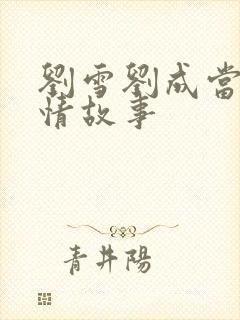 劉雪劉成當
情故事
青井陽